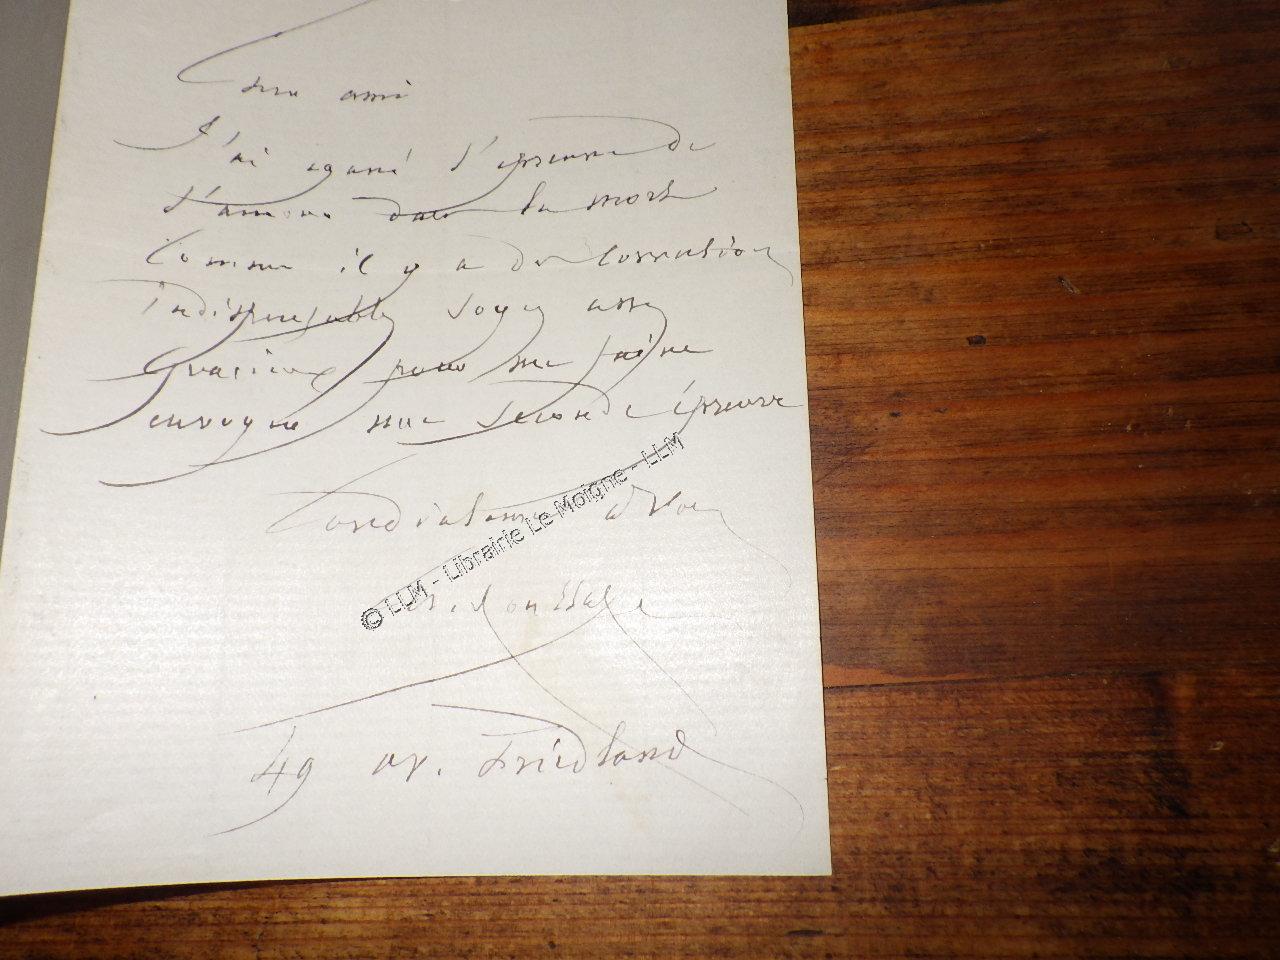 Cher ami
J'ai egaré l'epreuve de
L'amour dans la mort
Comme il y a des corrections
indispensables soyez assez
Gracieux pour me faire
envoyer une seconde épreuve
Cordialement à vous
© LLM - Librairie Le Moigne - LLM
Ar. Houssaye
49 av. Friedland